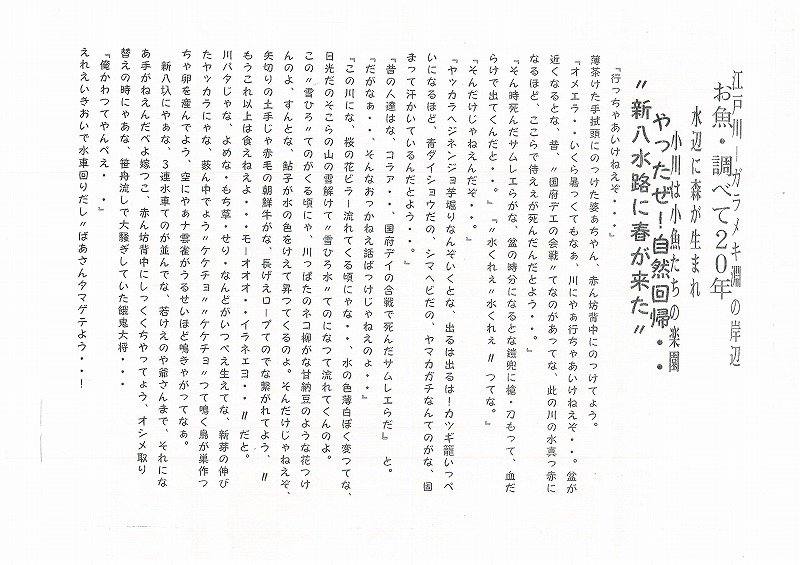 江戸川ーガラメキ淵の岸辺
お魚・調べて20年
水辺に森が生まれ
小川は小魚たちの楽園
やったぜ!自然回帰・・
〃新八水路に春が来た〃
『行っちゃあいけねえぞ・・・』
薄茶けた手拭頭にのっけた婆ぁちゃん、赤ん坊背中にのっけてよう。
『オメエラ・・いくら暑つくてもなぁ、川にやぁ行ちゃあいけねえぞ・・。盆が
近くなるとな、昔、〃国府デエの会戦〃てなのがあってな、此の川の水真っ赤に
なるほど、ここらで侍えが死んだんだとよう・・。』
『そん時死んだサムレエらがな、盆の時分になるとな鎧兜に槍・刀もって、血だ
らけで出てくんだと・・。』『〃水くれぇ〃水くれぇ〃つてな。』
『そんだけじゃねえんだぞ・・。』
『ヤッカラヘジネンジョ芋堀りなんぞいくとな、出るは出るは!カツギ籠いっぺ
いになるほど、青ダイショウだの、シマヘビだの、ヤマカガチなんてのがな、固
まって汗かいているんだとよう・・。』
『昔の人達はな、コラァ・・、国府デイの合戦で死んだサムレエらだ』と。
『だがなぁ・・、そんなおっかねえ話ばっけじゃねえのよ・・』
『この川にな、桜の花ビラー流れてくる頃にゃな・・、水の色薄白ぽく変つてな、
日光だのそこらの山の雪解けて〃雪ひろ水〃てのになつて流れてくんのよ。
この〃雪ひろ〃てのがくる頃にゃ、川っぱたのネコ柳がな甘納豆のような花つけ
んのよ、すんとな、鮎子が水の色をけえて昇つてくるのよ。そんだけじゃねえぞ、
矢切りの土手じゃ赤毛の朝鮮牛がな、長げえロープてのでな繋がれてよう、〃
もうこれ以上は食えねえよ・・・モーオオオ・・イラネェヨ・・〃だと。
川バタじゃな、よめな・もち草・せり・なんどがいつぺえ生えてな、新芽の伸び
たヤッカラにゃな、藪ん中でよう〃ケケチョ〃〃ケケチョ〃つて鳴く鳥が巣作つ
ちゃ卵を産んでよう、空にやぁナ雲雀がうるせいほど鳴きゃがってなぁ。
新八圦にやぁな、3連水車てのが並んでな、若けえのや爺さんまで、それにな
あ手がねえんだべよ嫁つこ、赤ん坊背中にしっくくちやってょう、オシメ取り
替えの時にゃあな、笹舟流しで大騒ぎしていた餓鬼大将・・・
『俺かわつてやんべえ・・』
えれえいきおいで水車回りだし〃ばあさんタマゲテよう・・・!